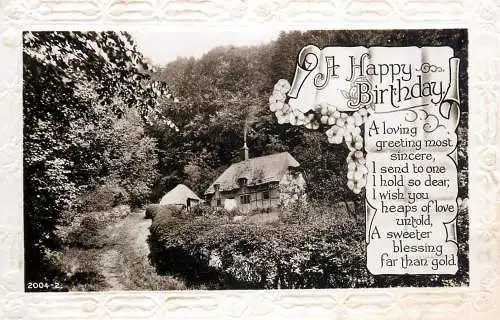 A Happy
Birthday!
A loving
greeting most
sincere,
I send to one
I hold so dear;
I wish you
heaps of love
untold,
A sweeter
blessing
far than gold.
2004-2.